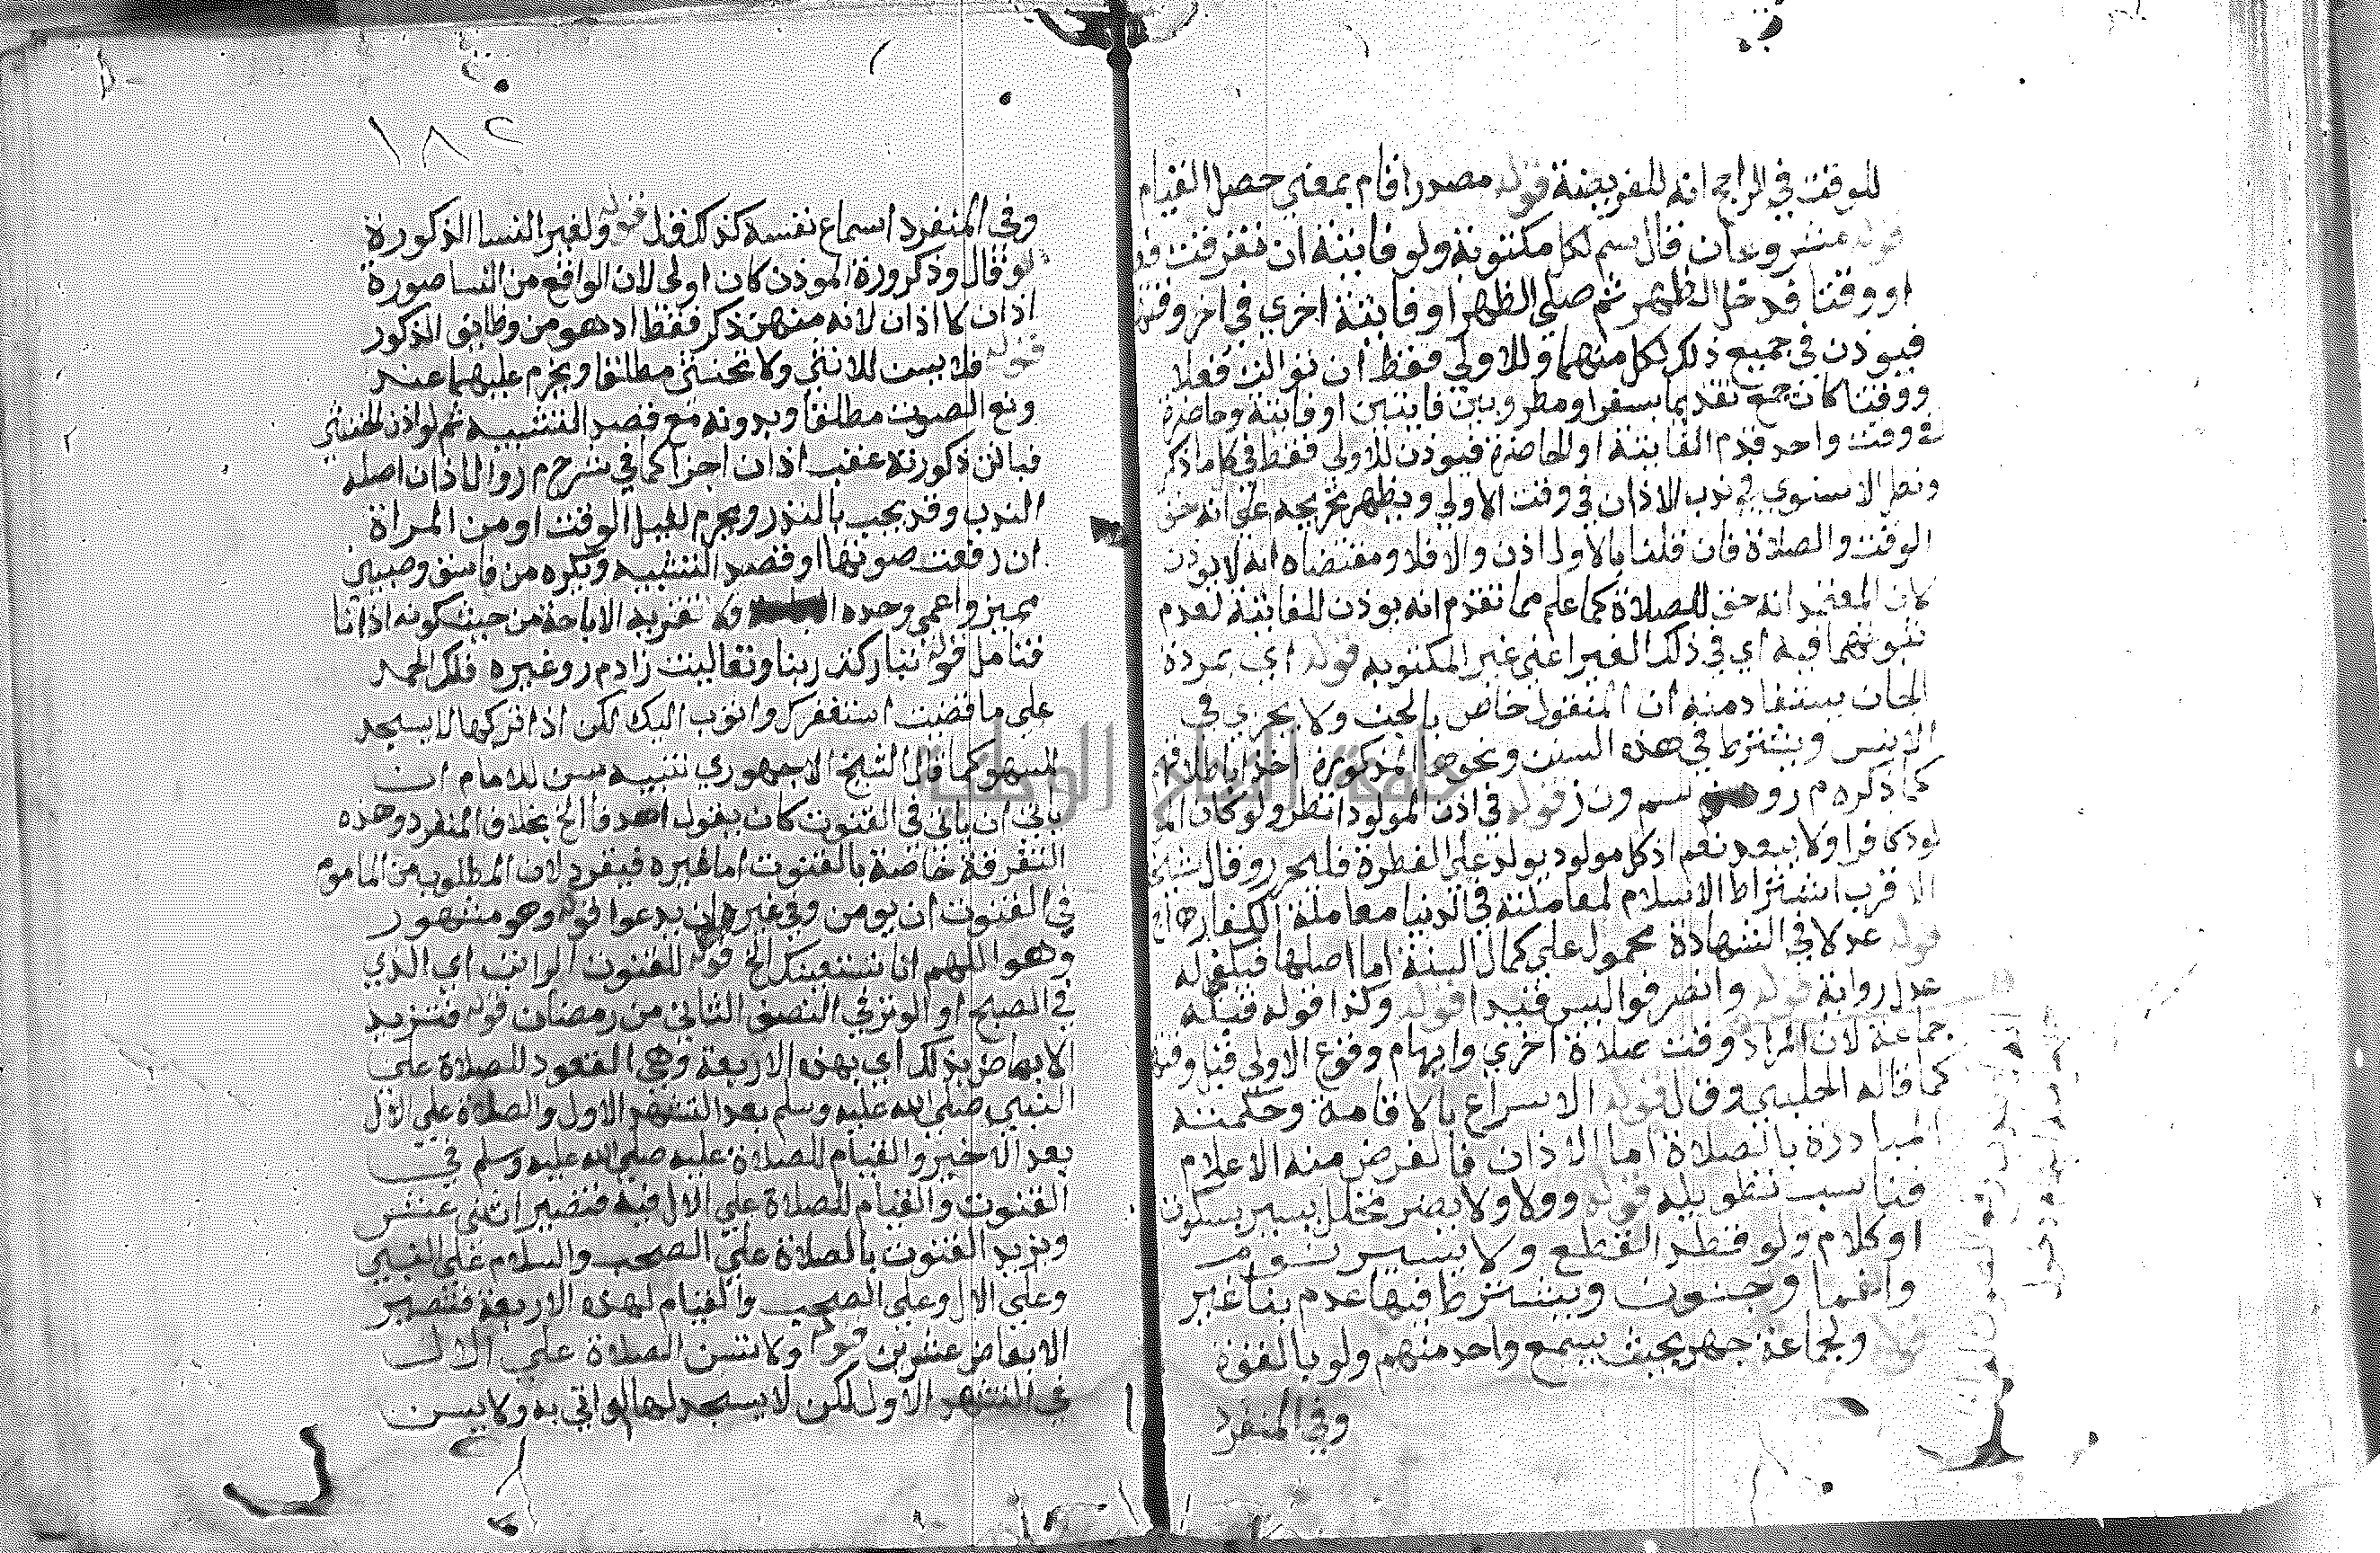 للوقت في الراجح انه للفريضة قوله مصدر اقام بمعني حصل القيام
قوله مشروعان قال بسم لكل مكتوبة ولو فايتة ان تفرقت
او وقتا قد خل الظهر ثم صلي الظهر او فايتة اخري في اخر وقتها
فيوذن في جميع ذلك لكل منهما وللاولي فقط ان توالت فعلا
ووقتا كان جمع تقديما بسفر او مطر وبين فايتتين او فايتة وحاضرة
في وقت واحد قدم الفايتة او الحاضرة فيوذن للاولي فقط في كل ما ذكر
ونظر الاسنوي في ندب الاذان في وقت الاولي ويظهر تخريجه علي انه حق
الوقت والصلاة فان قلنا بالاول اذن والا فلا ومقتضاه انه لا يوذن
لان المعتمد انه حق للصلاة كما علم مما تقدم انه يوذن للفايتة لعدم
ثبوتهما فيه اي في ذلك الغير اعني غير المكتوبه قوله اي بمردة
الجان يستفاد منه ان المتغول خاص بالجن ولا يجزي في
الانس ويشترط في هذه السنن ونحوها الذكورة اخذا باطلاقهم
كما ذكره م ر و سم ون ز قوله في اذن المولود انظر ولو كان
لودي كافرا ولا يبعد نعم اذ كل مولود يولد علي الفطرة فليحرر وقال شيخ
الاقرب اشتراط الاسلام لمعاملته في الدنيا معاملة الكفار
قوله عدلا في الشهادة محمول علي كمال السنة اما اصلها فيكفي له
عدل رواية قوله وانصرفوا ليس قيدا قوله وكذا قوله قبله
جماعة لان المراد وقت صلاة اخري وايهام وقوع الاولي قبل وقتها
كما قاله الحلبي وقال قوله الاسراع بالاقامة وحكمته
المبادرة بالصلاة اما الاذان فالغرض منه الاعلام
فناسب تطويله قوله وولا ولا يضر تخلل يسير سكوت
او كلام ولو قطر القطع ولا يسير نوم
واغما وجنون ويشترط فيها عدم بنا غير
قوله ولجماعة جهر بحيث يسمع واحد منهم ولو بالقوة
وفي المنفرد
١٨٢
وفي المنفرد اسماع نفسه كذلك قل قوله ولغير النسا الذكورة
لو قال وذكرورة الموذن كان اولي لان الواقع من النسا صورة
اذان لا اذان لانه منهن ذكر فقط اذ هو من وظايف الذكور
قوله فلا يسن للانثي ولا لخنثي مطلقا ويحرم عليهما عند
رفع الصوت مطلقا وبدونه مع قصد التشبيه ثم لو اذن الخنثي
فبانن ذكورته عقب اذان اجزا كما في شرح م ر والاذان اصله
الندب وقد يجب بالنذر ويحرم لقبل الوقت او من المراة
ان رفعت صوتها او قصد التشبيه ويكره من فاسق وصبيي
مميز واعمي وحده ولا تعتريه الاباحة من حيث كونه اذانا
فتامل قوله تباركت ربنا وتعاليت زاد م ر وغيره فلك الحمد
علي ما قضيت استغفرك واتوب اليك لكن اذا تركها لا يسجد
للسهو كما قال الشيخ الاجهوري تنبيه سن للامام ان
ياتي ان ياتي في القنوت كان يقول اهدنا الخ بخلاف المنفرد وهذه
التفرقة خاصة بالقنوت اما غيره فيفرد لان المطلوب من الماموم
في القنوت ان يومن وفي غيره ان يدعوا قوله وهو مشهور
وهو اللهم انا نستعينك الخ قوله للقنوت الراتب اي الذي
في الصبح او الوتر في النصف الثاني من رمضان قوله فتزيد
الابعاض بذلك اي بهذه الاربعة وهي القعود للصلاة علي
النبي صلي الله عليه وسلم بعد التشهد الاول والصلاة علي الال
بعد الاخير والقيام للصلاة عليه صلي الله عليه وسلم في
القنوت والقيام للصلاة علي الال فيه فتصير اثني عشر
ويزيد القنوت بالصلاة علي الصحب والسلام علي النبي
وعلي الال وعلي الصحب والقيام لهذه الاربعة فتصير
الابعاض عشرين قوله ولا تسن الصلاة علي الال
في التشهد الاول لكن لا يسجد لها لو اتي به ولا يسن